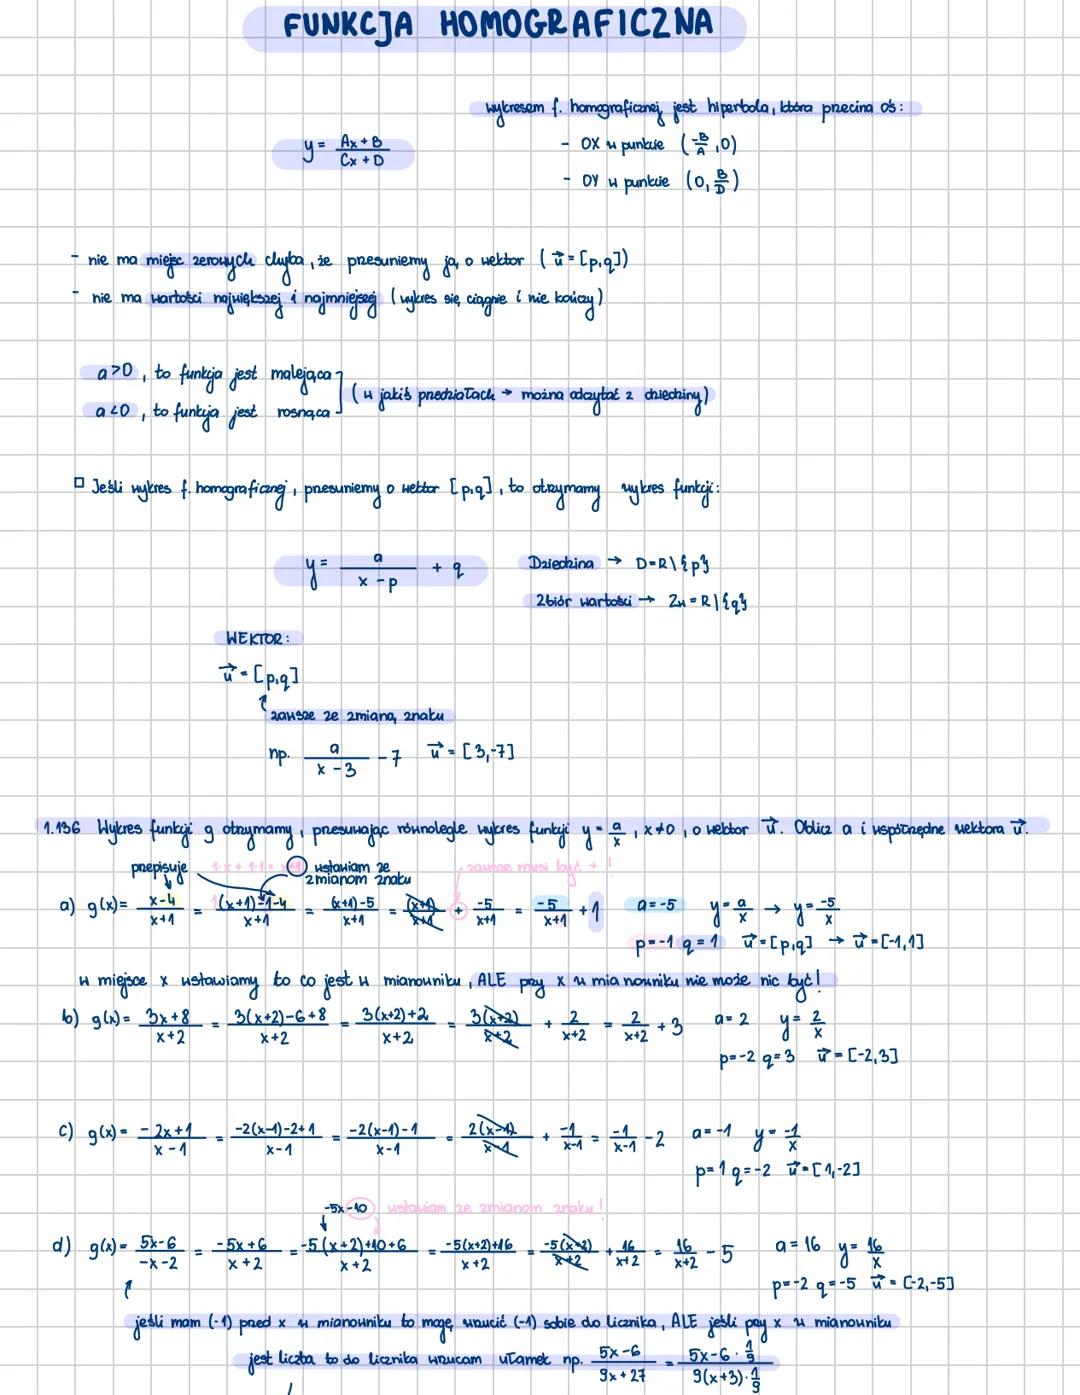 FUNKCJA HOMOGRAFICZNA
wykresem f. homograficznej jest hiperbola, która przecina oś:
y = \frac{Ax+B}{Cx+D}
- OX w punkcie (\frac{-B}{A}, 0)
- OY w punkcie (0, \frac{B}{D})
- nie ma miejsc zerowych chyba, że przesuniemy ją o wektor (\vec{u} = [p,q])
- nie ma wartości największej i najmniejszej (wykres się ciągnie i nie kończy)
a>0, to funkcja jest malejąca
(w jakiś przedziałach → można odczytać z dziedziny)
a<0, to funkcja jest rosnąca
□ Jeśli wykres f. homograficznej, przesuniemy o wektor [p,q], to otrzymamy wykres funkcji:
y = \frac{a}{x-p} + q Dziedzina → D=R\{p}
Zbiór wartości → Zw=R\{q}
WEKTOR:
\vec{u} = [p,q]
↑ zawsze ze zmianą znaku
np. \frac{a}{x-3} -7 \vec{u} = [3,-7]
1.136 Wykres funkcji g otrzymamy, przesuwając równolegle wykres funkcji y = \frac{a}{x}, x≠0, o wektor \vec{u}. Oblicz a i współrzędne wektora \vec{u}.
przepisuje 1·x + 1·1 = x+1 wstawiam ze zawsze musi być + !
zmianom znaku
a) g(x) = \frac{x-4}{x+1} = \frac{1(x+1)-1-4}{x+1} = \frac{(x+1)-5}{x+1} = \frac{(x+1)}{x+1} + \frac{-5}{x+1} = \frac{-5}{x+1} + 1 a=-5 y = \frac{a}{x} → y = \frac{-5}{x}
p=-1 q=1 \vec{u} = [p,q] → \vec{u} = [-1,1]
w miejsce x wstawiamy to co jest w mianowniku, ALE przy x w mianowniku nie może nic być!
b) g(x) = \frac{3x+8}{x+2} = \frac{3(x+2)-6+8}{x+2} = \frac{3(x+2)+2}{x+2} = \frac{3(x+2)}{x+2} + \frac{2}{x+2} = \frac{2}{x+2} + 3 a=2 y = \frac{2}{x}
p=-2 q=3 \vec{u} = [-2,3]
c) g(x) = \frac{-2x+1}{x-1} = \frac{-2(x-1)-2+1}{x-1} = \frac{-2(x-1)-1}{x-1} = \frac{2(x-1)}{x-1} + \frac{-1}{x-1} = \frac{-1}{x-1} - 2 a=-1 y = \frac{-1}{x}
p=1 q=-2 \vec{u} = [1,-2]
-5x-10 wstawiam ze zmianom znaku!
d) g(x) = \frac{5x-6}{-x-2} = \frac{-5x+6}{x+2} = \frac{-5(x+2)+10+6}{x+2} = \frac{-5(x+2)+16}{x+2} = \frac{-5(x+2)}{x+2} + \frac{16}{x+2} = \frac{16}{x+2} - 5 a=16 y = \frac{16}{x}
p=-2 q=-5 \vec{u} = [-2,-5]
jeśli mam (-1) przed x w mianowniku to mogę wrzucić (-1) sobie do licznika, ALE jeśli przy x w mianowniku
jest liczba to do licznika wrzucam ułamek np. \frac{5x-6}{9x+27} = \frac{5x-6·\frac{1}{9}}{9(x+3)·\frac{1}{9}}